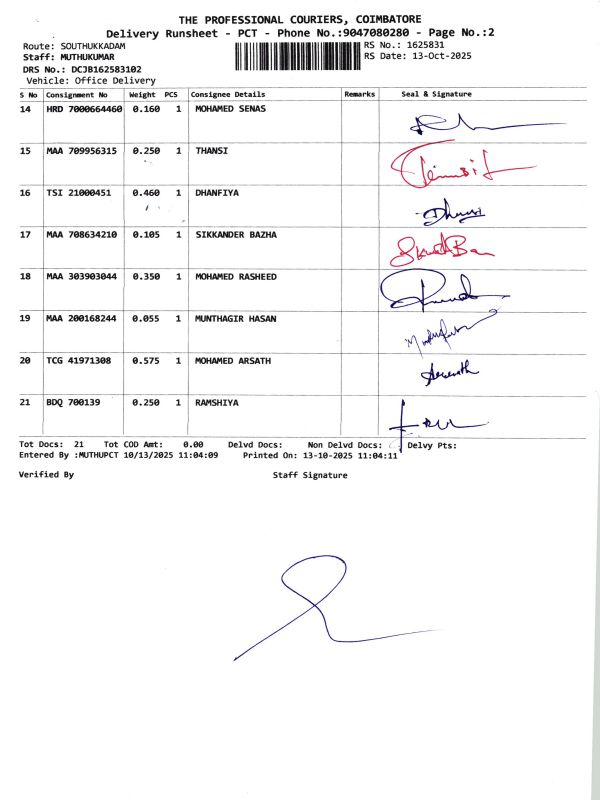 THE PROFESSIONAL COURIERS, COIMBATORE
Delivery Runsheet - PCT - Phone No.:9047080280 - Page No.:2
Route: SOUTHUKKADAM RS No.: 1625831
Staff: MUTHUKUMAR RS Date: 13-Oct-2025
DRS No.: DCJB162583102
Vehicle: Office Delivery
S No Consignment No Weight PCS Consignee Details Remarks Seal & Signature
14 HRD 7000664460 0.160 1 MOHAMED SENAS
15 MAA 709956315 0.250 1 THANSI
16 TSI 21000451 0.460 1 DHANFIYA
17 MAA 708634210 0.105 1 SIKKANDER BAZHA
18 MAA 303903044 0.350 1 MOHAMED RASHEED
19 MAA 200168244 0.055 1 MUNTHAGIR HASAN
20 TCG 41971308 0.575 1 MOHAMED ARSATH
21 BDQ 700139 0.250 1 RAMSHIYA
Tot Docs: 21 Tot COD Amt: 0.00 Delvd Docs: Non Delvd Docs: Delvy Pts:
Entered By :MUTHUPCT 10/13/2025 11:04:09 Printed On: 13-10-2025 11:04:11
Verified By Staff Signature